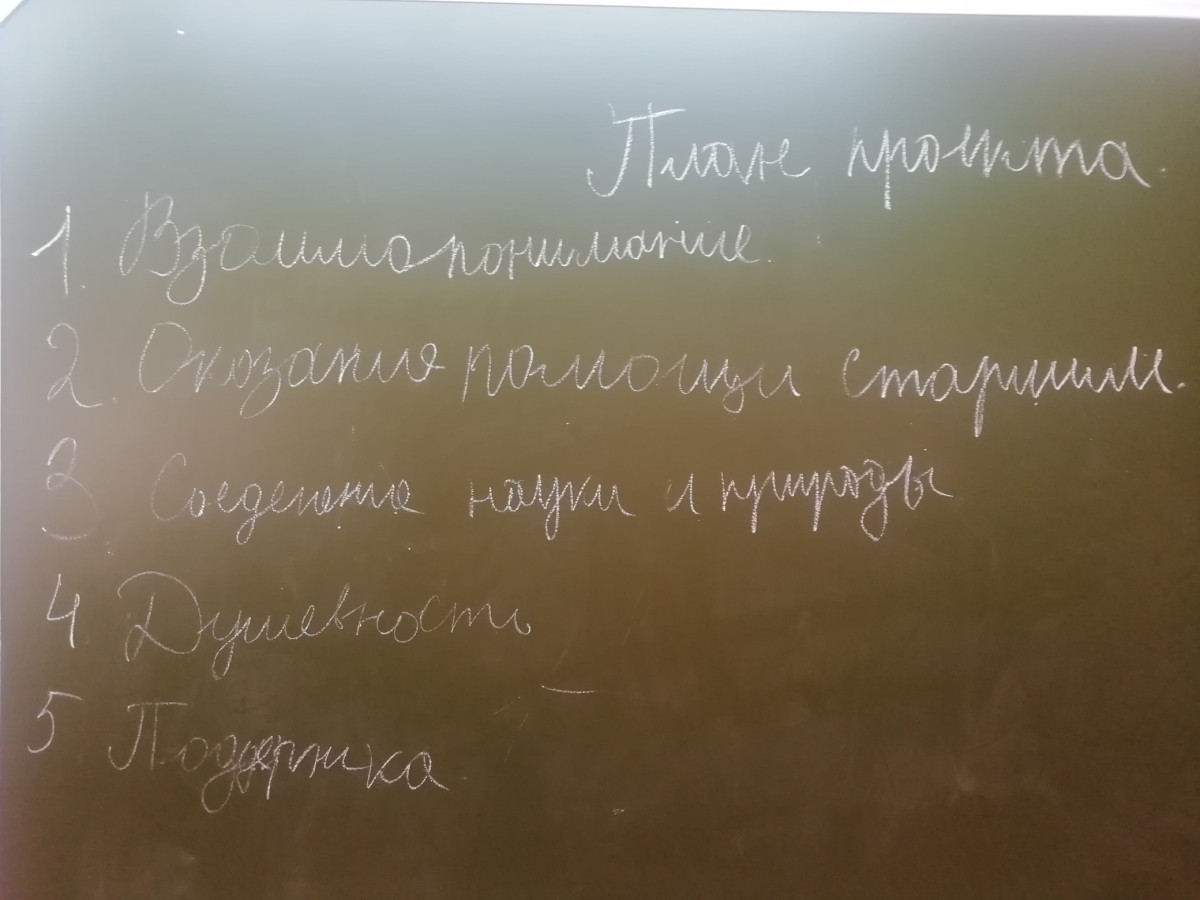 План проекта.
1. Взаимопонимание.
2. Оказание помощи старшим.
3. Соеденение науки и природы
4 Душевность
5 Поддержка